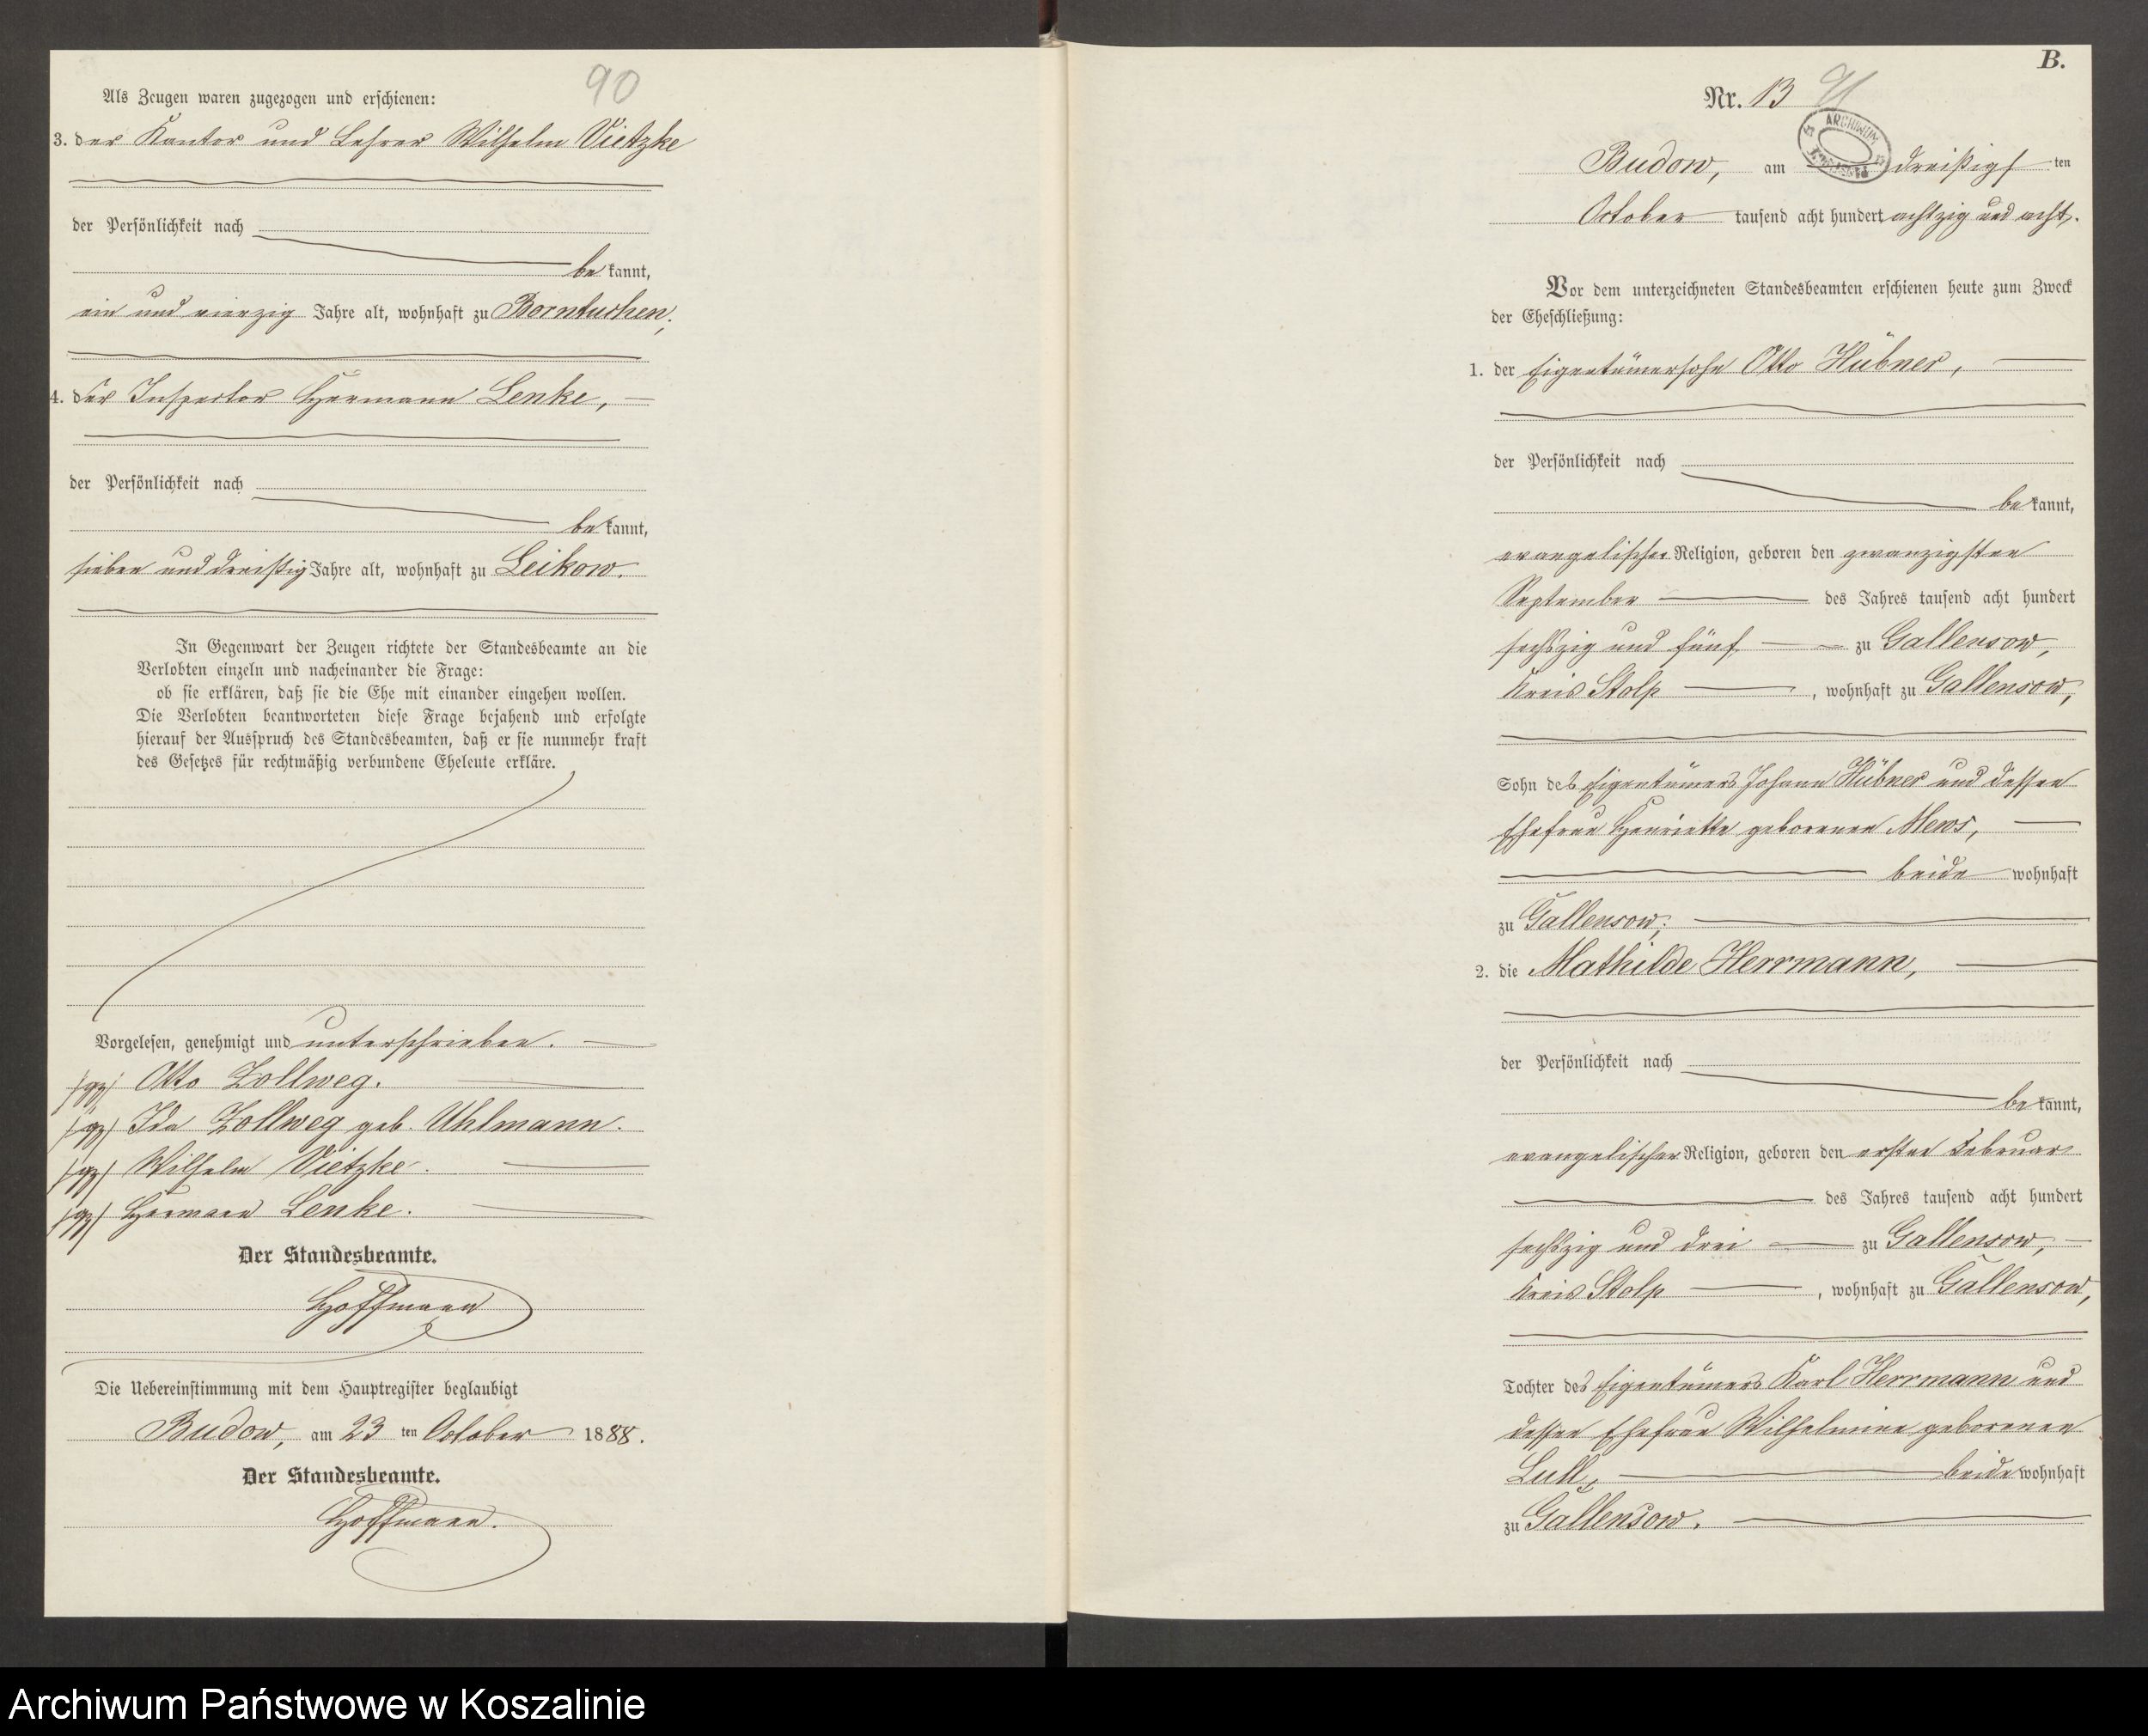 90
Als Zeugen waren zugezogen und erschienen:
3. der Kantor und Lehrer Wilhelm Vietzke
der Persönlichkeit nach
bekannt,
ein und vierzig Jahre alt, wohnhaft zu Borntuchen;
4. der Inspector Hermann Lenke,
der Persönlichkeit nach
bekannt,
sieben und dreißig Jahre alt, wohnhaft zu Leikow.
In Gegenwart der Zeugen richtete der Standesbeamte an die
Verlobten einzeln und nacheinander die Frage:
ob sie erklären, daß sie die Ehe mit einander eingehen wollen.
Die Verlobten beantworteten diese Frage bejahend und erfolgte
hierauf der Ausspruch des Standesbeamten, daß er sie nunmehr kraft
des Gesetzes für rechtmäßig verbundene Eheleute erkläre.
Vorgelesen, genehmigt und unterschrieben.
/gz/ Otto Zollweg.
/gz/ Ida Zollweg geb. Uhlmann.
/gz/ Wilhelm Vietzke.
/gz/ Hermann Lenke.
Der Standesbeamte.
Hoffmann
Die Uebereinstimmung mit dem Hauptregister beglaubigt
Budow, am 23 ten October 1888.
Der Standesbeamte.
Hoffmann.
B.
Nr. 13 91
ARCHIWUM
Budow, am dreißigsten
October tausend acht hundert achtzig und acht.
Vor dem unterzeichneten Standesbeamten erschienen heute zum Zweck
der Eheschließung:
1. der Eigentümersohn Otto Hübner,
der Persönlichkeit nach
bekannt,
evangelischer Religion, geboren den zwanzigsten
September des Jahres tausend acht hundert
sechszig und fünf zu Gallensow,
Kreis Stolp, wohnhaft zu Gallensow,
Sohn des Eigentümers Johann Hübner und dessen
Ehefrau Henriette geborenen Mews,
beide wohnhaft
zu Gallensow;
2. die Mathilde Herrmann,
der Persönlichkeit nach
bekannt,
evangelischer Religion, geboren den ersten Februar
des Jahres tausend acht hundert
sechszig und drei zu Gallensow,
Kreis Stolp, wohnhaft zu Gallensow,
Tochter des Eigentümers Karl Herrmann und
dessen Ehefrau Wilhelmine geborenen
Lull, beide wohnhaft
zu Gallensow.
Archiwum Państwowe w Koszalinie